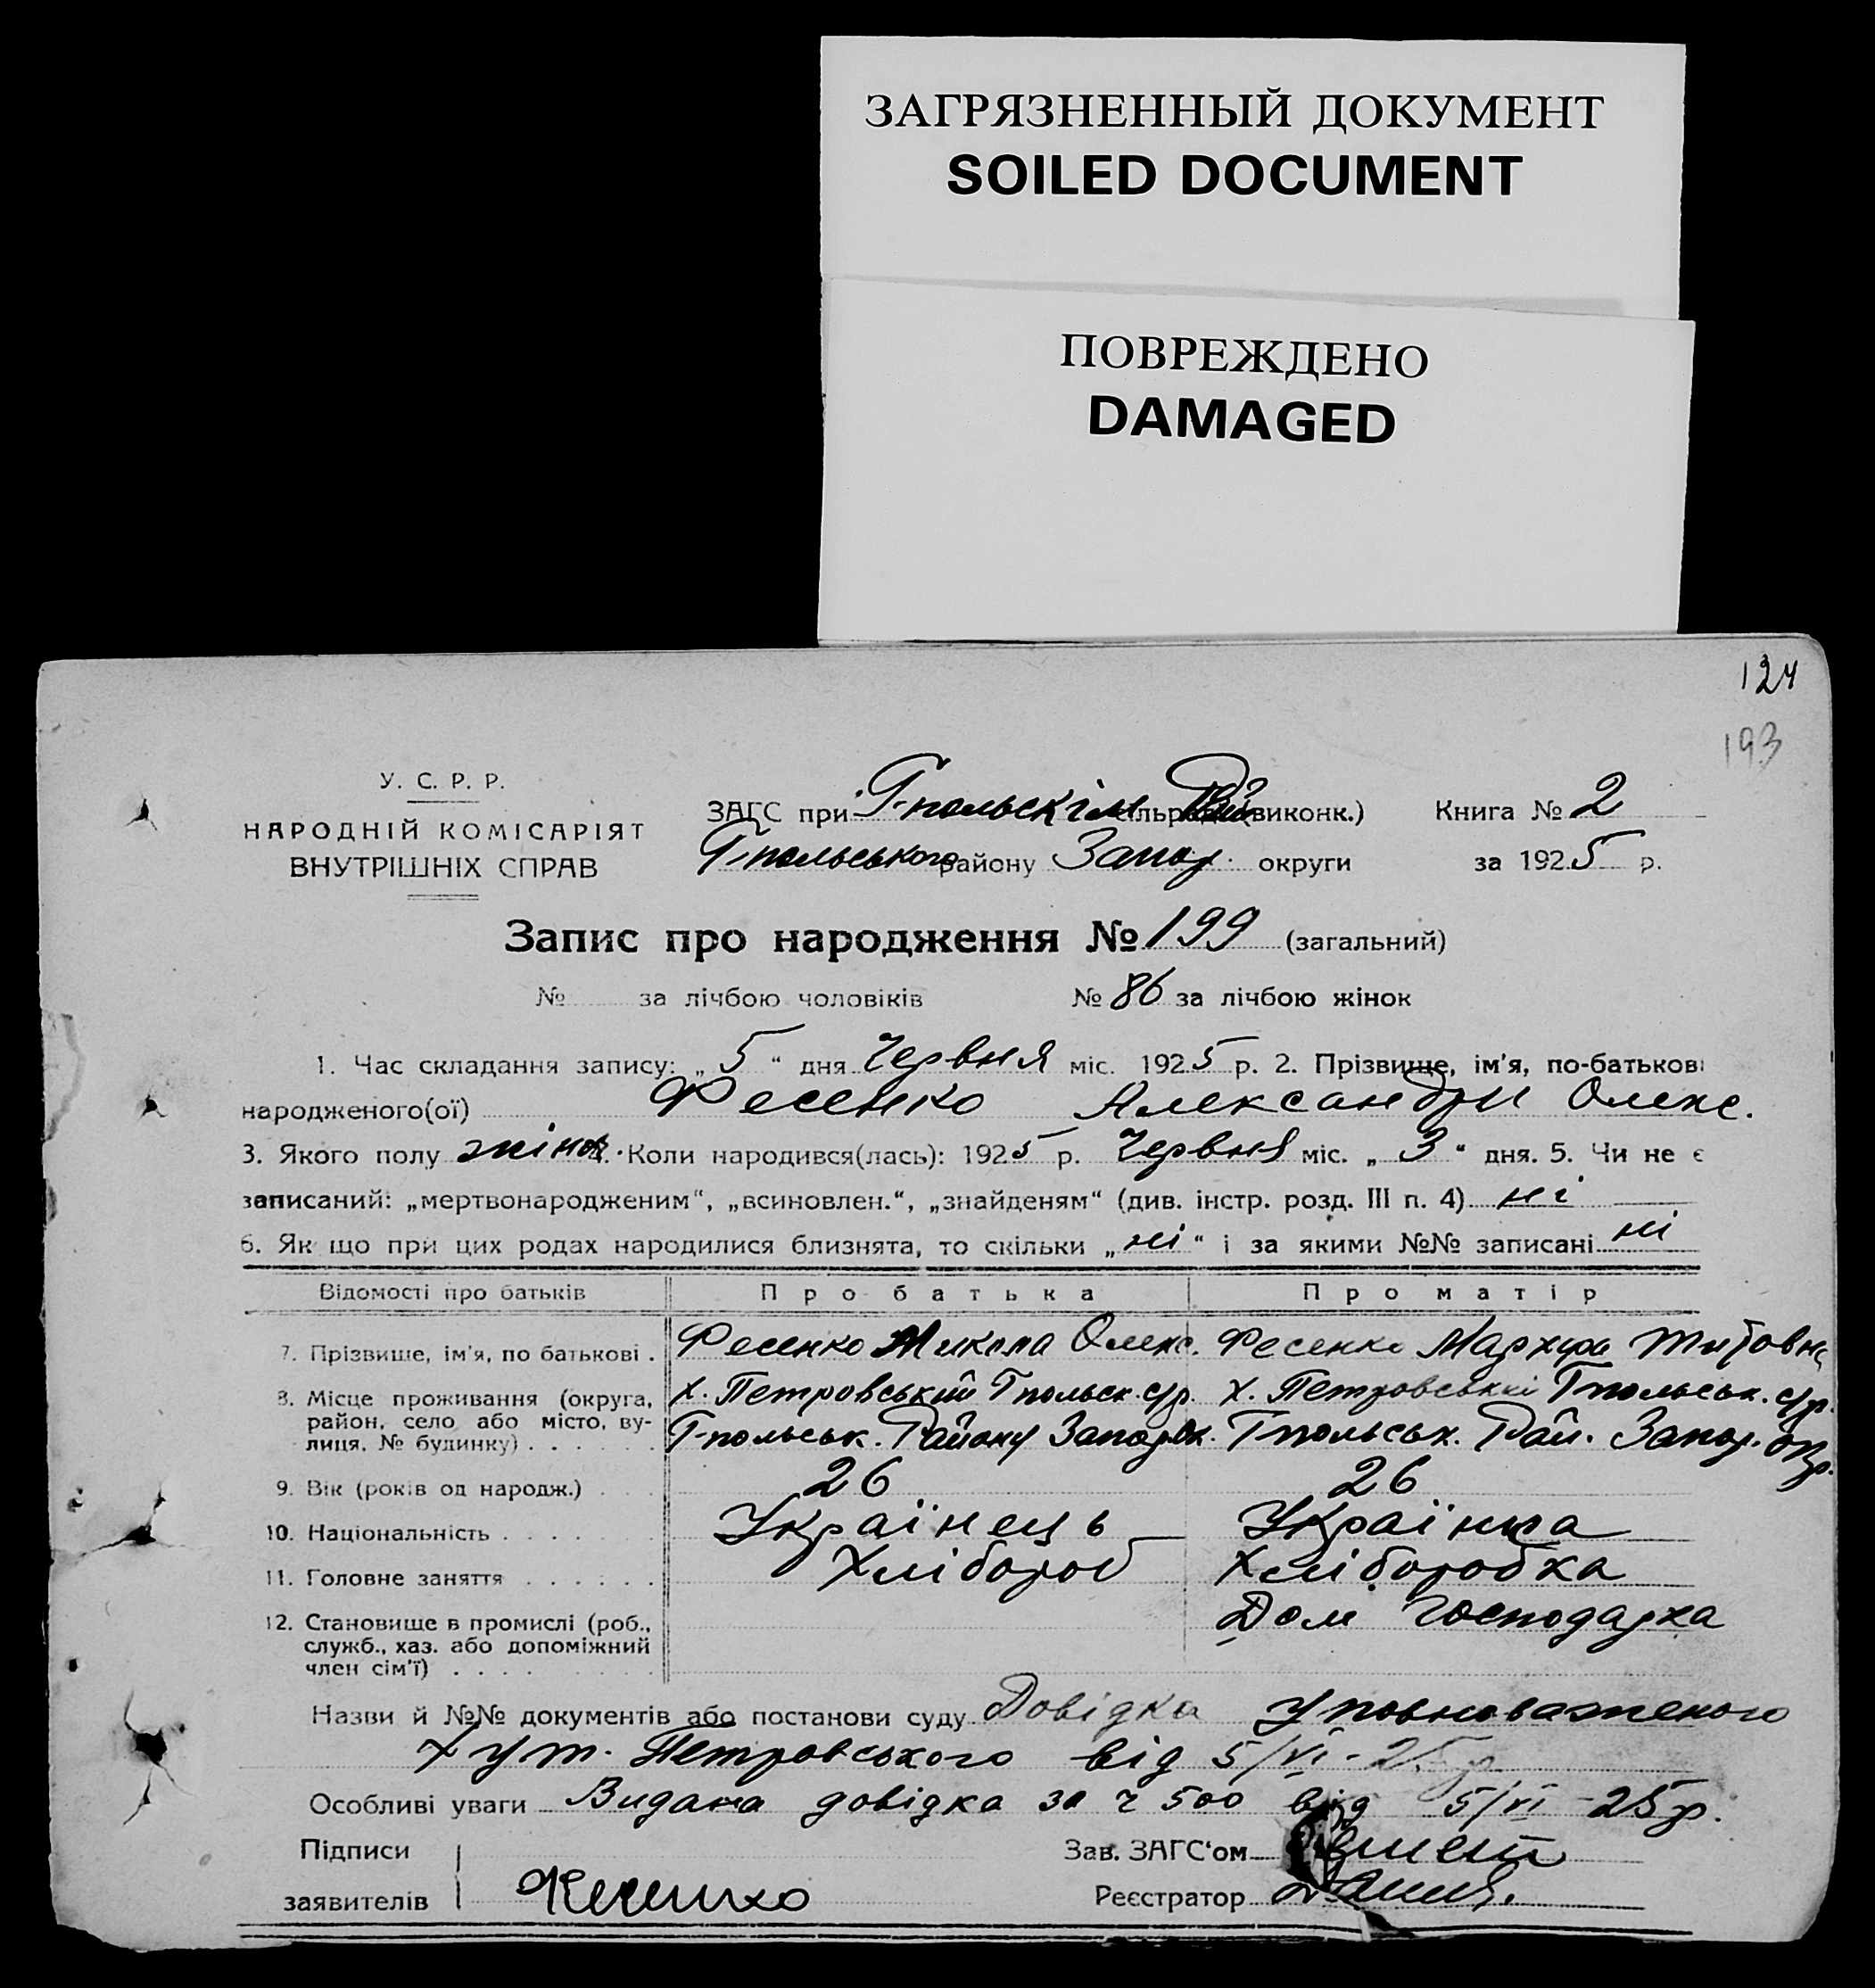 ЗАГРЯЗНЕННЫЙ ДОКУМЕНТ
SOILED DOCUMENT
ПОВРЕЖДЕНО
DAMAGED
124
193
У. С. Р. Р.
НАРОДНІЙ КОМІСАРІЯТ
ВНУТРІШНІХ СПРАВ
ЗАГС при Г-польскім Рай (виконк.) Книга № 2
Г-польського району Запор. округи за 1925 р.
Запис про народження № 199 (загальний)
№ за лічбою чоловіків № 86 за лічбою жінок
1. Час складання запису: „5“ дня Червня міс. 1925 р. 2. Прізвище, ім'я, по-батькові
народженого(ої) Фесенко Александри Олекс.
3. Якого полу жіноч. Коли народився(лась): 1925 р. Червня міс. „3“ дня. 5. Чи не є
записаний: „мертвонародженим“, „всиновлен.“, „знайденям“ (див. інстр. розд. III п. 4) ні
6. Як що при цих родах народилися близнята, то скільки „ні“ і за якими №№ записані ні
Відомості про батьків Про батька Про матір
7. Прізвише, ім'я, по батькові . Фесенко Микола Олекс. Фесенко Мархфа Титовна
8. Місце проживання (округа, район, село або місто, вулиця, № будинку) . . . . . . х. Петровський Гпольск. с/р. х. Петровські Гпольськ. с/р.
Г-польськ. Району Запор Ок. Гпольськ. Рай. Запор. окр.
9. Вік (років од народж.) . . . 26 26
10. Національність . . . . Українець Українка
11. Головне заняття . . . . . . Хлібороб Хліборобка
12. Становище в промислі (роб., служб., хаз. або допоміжний член сім'ї) . . . . Дом господарка
Назви й №№ документів або постанови суду Довідка Уповноваженого
Хут. Петровського від 5/VI-25 р
Особливі уваги Видана довідка за ч 500 від 5/VI-25 р.
Підписи Зав. ЗАГС'ом
заявителів Фесенко Реєстратор